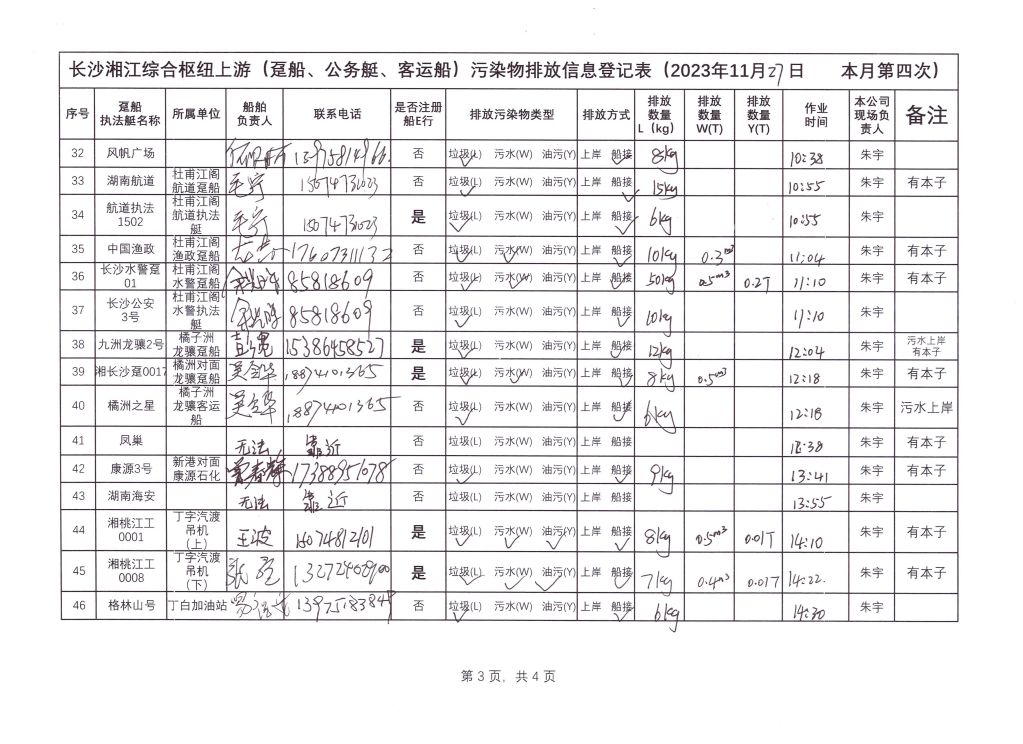 长沙湘江综合枢纽上游（趸船、公务艇、客运船）污染物排放信息登记表（2023年11月27日 本月第四次）
序号 趸船执法艇名称 所属单位 船舶负责人 联系电话 是否注册船E行 排放污染物类型 排放方式 排放数量L（kg） 排放数量W(T) 排放数量Y(T) 作业时间 本公司现场负责人 备注
32 风帆广场 否 垃圾(L) 污水(W) 油污(Y) 上岸 船接 8kg 10:38 朱宇
33 湖南航道 杜甫江阁航道趸船 毛宁 15074731023 否 垃圾(L) 污水(W) 油污(Y) 上岸 船接 15kg 10:55 朱宇 有本子
34 航道执法1502 杜甫江阁航道执法艇 毛宁 15074731023 是 垃圾(L) 污水(W) 油污(Y) 上岸 船接 6kg 10:55 朱宇
35 中国渔政 杜甫江阁渔政趸船 17607311132 否 垃圾(L) 污水(W) 油污(Y) 上岸 船接 10kg 0.3m³ 11:04 朱宇 有本子
36 长沙水警趸01 杜甫江阁水警趸船 85818609 否 垃圾(L) 污水(W) 油污(Y) 上岸 船接 50kg 0.5m³ 0.2T 11:10 朱宇 有本子
37 长沙公安3号 杜甫江阁水警执法艇 85818609 否 垃圾(L) 污水(W) 油污(Y) 上岸 船接 10kg 11:10 朱宇
38 九洲龙骧2号 橘子洲龙骧趸船 15386458527 是 垃圾(L) 污水(W) 油污(Y) 上岸 船接 12kg 12:04 朱宇 污水上岸有本子
39 湘长沙趸0017 橘洲对面龙骧趸船 18874101365 是 垃圾(L) 污水(W) 油污(Y) 上岸 船接 8kg 0.5m³ 12:18 朱宇 有本子
40 橘洲之星 橘子洲龙骧客运船 18874101365 否 垃圾(L) 污水(W) 油污(Y) 上岸 船接 6kg 12:18 朱宇 污水上岸
41 凤巢 无法 靠近 否 垃圾(L) 污水(W) 油污(Y) 上岸 船接 朱宇 有本子
42 康源3号 新港对面康源石化 17388951078 否 垃圾(L) 污水(W) 油污(Y) 上岸 船接 9kg 13:41 朱宇 有本子
43 湖南海安 无法 靠近 否 垃圾(L) 污水(W) 油污(Y) 上岸 船接 13:55 朱宇
44 湘桃江工0001 丁字汽渡吊机（上） 王波 15074812101 是 垃圾(L) 污水(W) 油污(Y) 上岸 船接 8kg 0.5m³ 0.01T 14:10 朱宇 有本子
45 湘桃江工0008 丁字汽渡吊机（下） 是 垃圾(L) 污水(W) 油污(Y) 上岸 船接 7kg 0.4m³ 0.01T 14:22 朱宇 有本子
46 格林山号 丁白加油站 否 垃圾(L) 污水(W) 油污(Y) 上岸 船接 6kg 14:30 朱宇
第 3 页，共 4 页